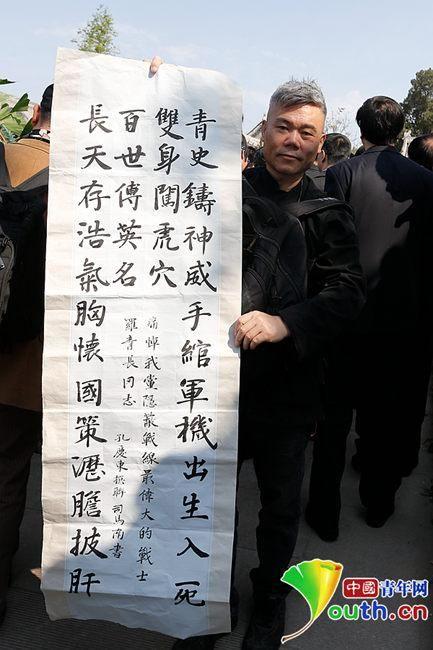 青史鑄神威手綰軍機出生入死
雙身闖虎穴
百世傳英名
長天存浩氣胸懷國策瀝膽披肝
痛悼我黨隱蔽戰線最偉大的戰士
羅青長同志
孔慶東撰聯 司馬南書
中國青年网
Youth.cn